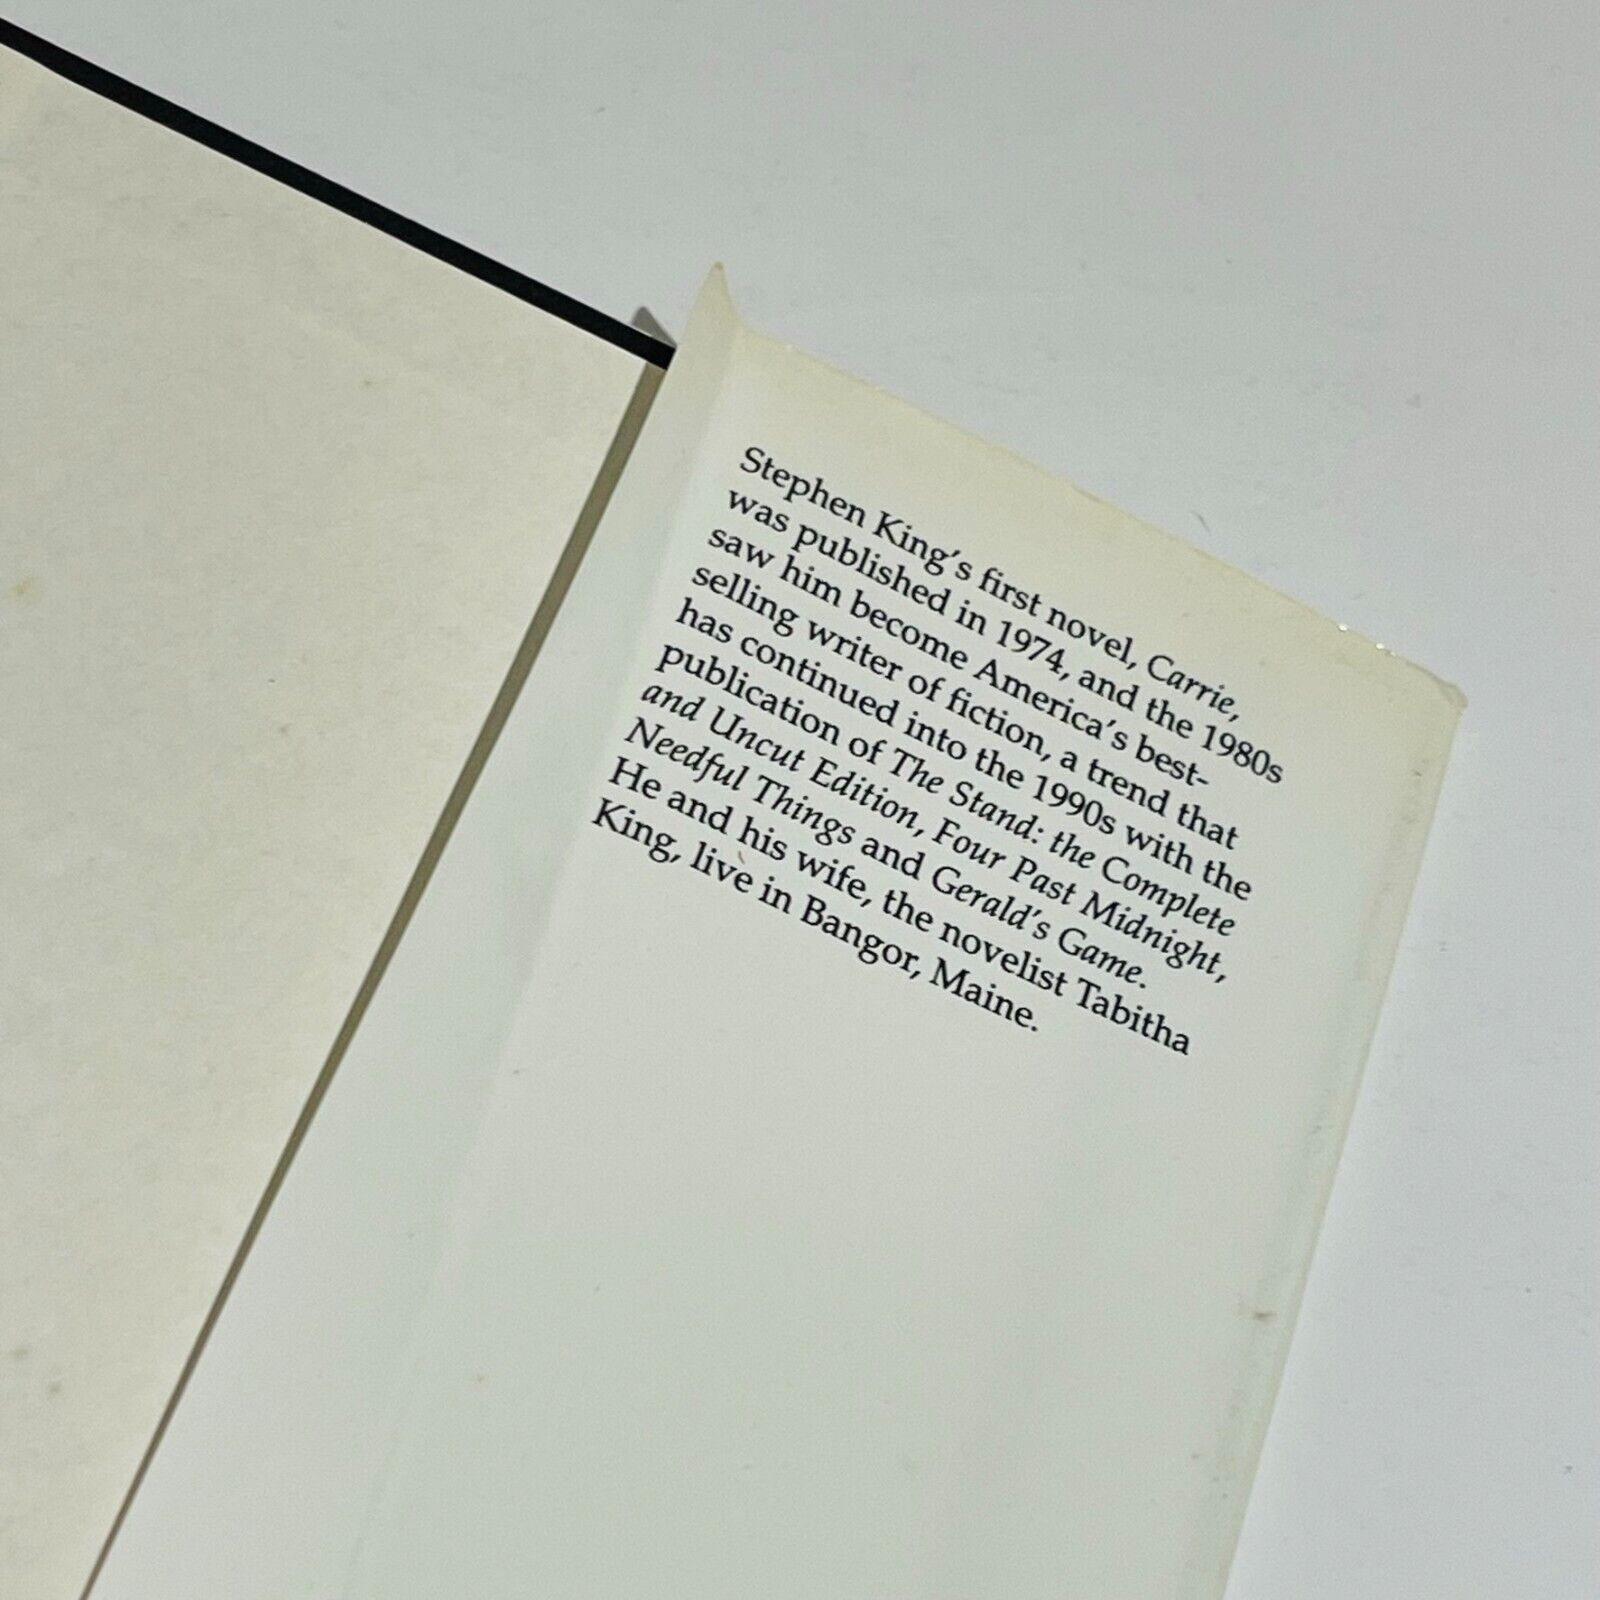 Stephen King's first novel, Carrie,
was published in 1974, and the 1980s
saw him become America's best-
selling writer of fiction, a trend that
has continued into the 1990s with the
publication of The Stand: the Complete
and Uncut Edition, Four Past Midnight,
Needful Things and Gerald's Game.
He and his wife, the novelist Tabitha
King, live in Bangor, Maine.